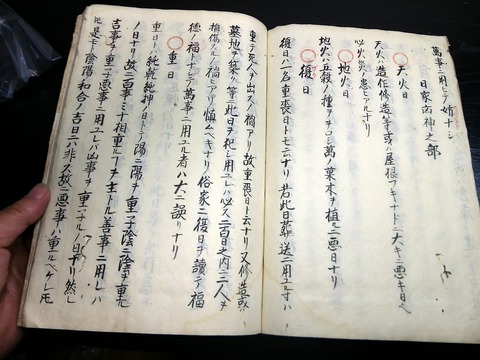 萬事ニ用ヒテ妨ナシ
日家凶神之部
○天火日
天火ハ造作修造等或ハ屋根フキナドニ大キニ悪キ日也
必火災ノ患ヒアルナリ
○地火日
地火ハ五穀ノ種ヲヲロシ萬ノ草木ヲ植ルニ悪日ナリ
○復日
復日ハ一名重喪日トモ云ナリ若此日葬送ニ用ユレハ
重テ死人ヲ出スノ禍アリ故重喪日ト云ナリ又修造或
墓地ヲ築ク等ニ此日ヲ犯シ用ユレハ必ス二百日之内ニ人ヲ
損傷スルノ禍ヒアリ慎ムヘキナリ俗家ニ復日ヲ讀テ福
徳ノ福トナシテ萬事ニ用ユ者ハ大ニ誤リナリ
○重日
重日トハ純乾純坤ノ日トテ陽ニ陽ヲ重子陰ニ陰ヲ重ル
ノ日ナリ故ニ百事ミナ相重ルヿヲ主トル善事ニ用レハ
吉事ヲ重子悪事ニ用ユレハ凶事ヲ重子ルノ日ナリ然レ
𪜈是モト陰陽和合ノ吉日ニハ非ス故ニ悪事ハ重ルヘケレ𪜈